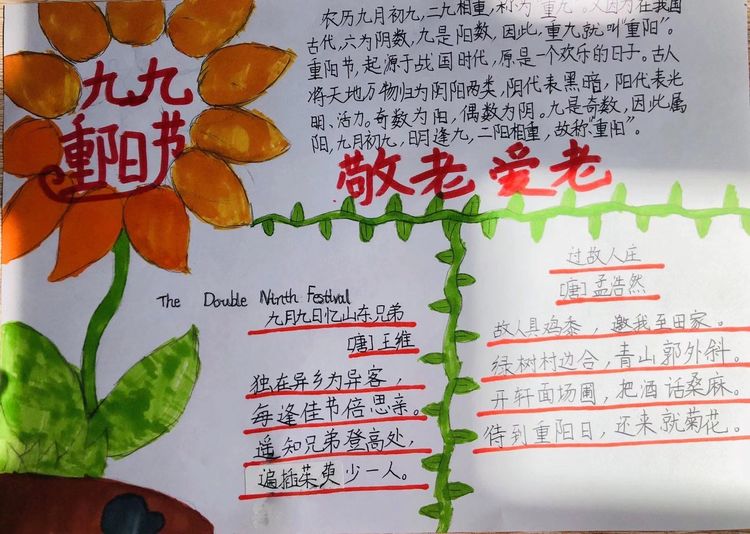 九九
重阳节
农历九月初九,二九相重,称为"重九"。又因为在我国
古代,六为阴数,九是阳数,因此,重九就叫"重阳"。
重阳节,起源于战国时代,原是一个欢乐的日子。古人
将天地万物归为阴阳两类,阴代表黑暗,阳代表光
明、活力。奇数为阳,偶数为阴。九是奇数,因此属
阳,九月初九,日月逢九,二阳相重,故称"重阳"。
敬老爱老
The Double Ninth Festival
九月九日忆山东兄弟
[唐]王维
独在异乡为异客,
每逢佳节倍思亲。
遥知兄弟登高处,
遍插茱萸少一人。
过故人庄
[唐]孟浩然
故人具鸡黍,邀我至田家。
绿树村边合,青山郭外斜。
开轩面场圃,把酒话桑麻。
待到重阳日,还来就菊花。